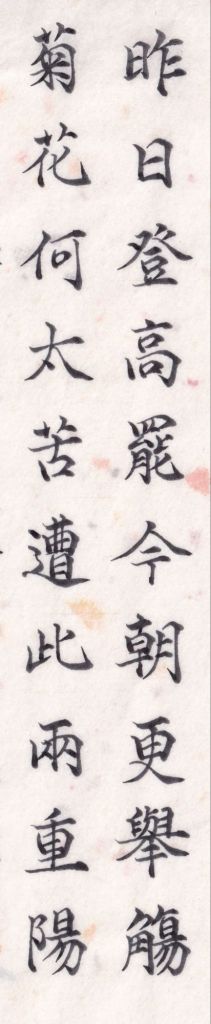 昨日登高罷今朝更舉觴
菊花何太苦遭此兩重陽